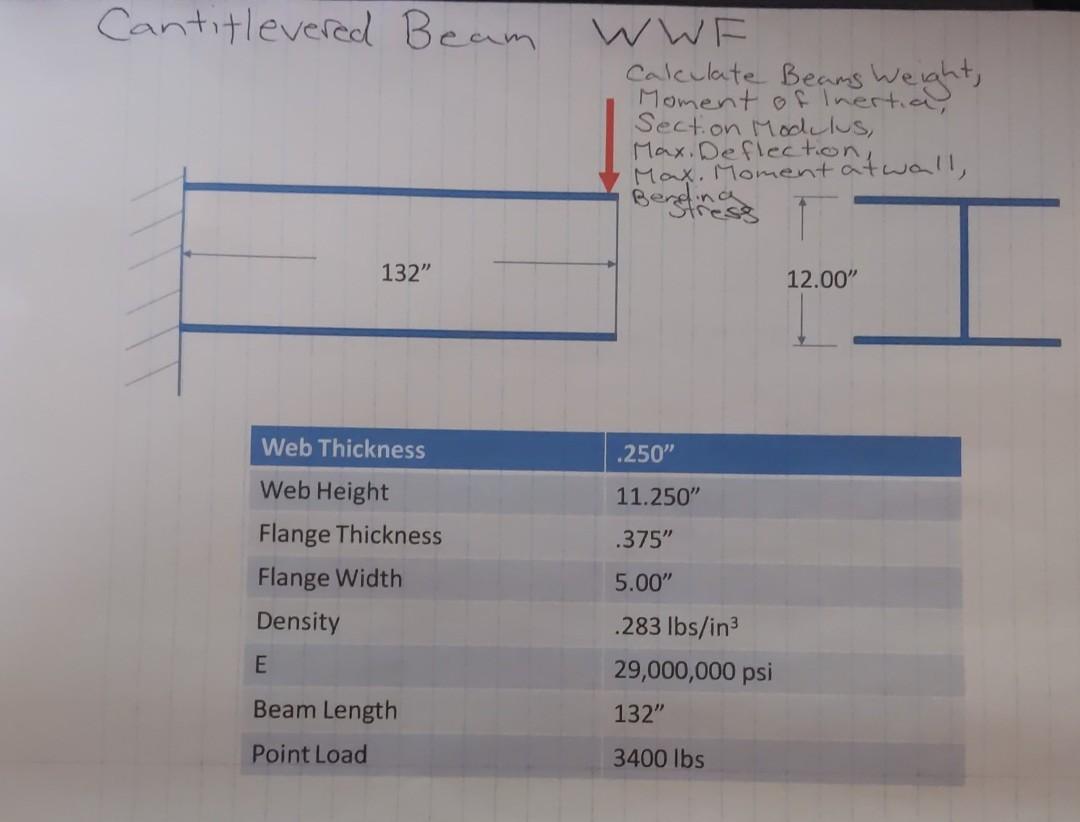 Cantitlevered Beam WWF
Calculate Beams Weight,
Moment of Inertia,
Section Modulus,
Max. Deflection,
Max. Moment at wall,
Bending
Stress
132”
12.00”
Web Thickness .250”
Web Height 11.250”
Flange Thickness .375”
Flange Width 5.00”
Density .283 lbs/in³
E 29,000,000 psi
Beam Length 132”
Point Load 3400 lbs